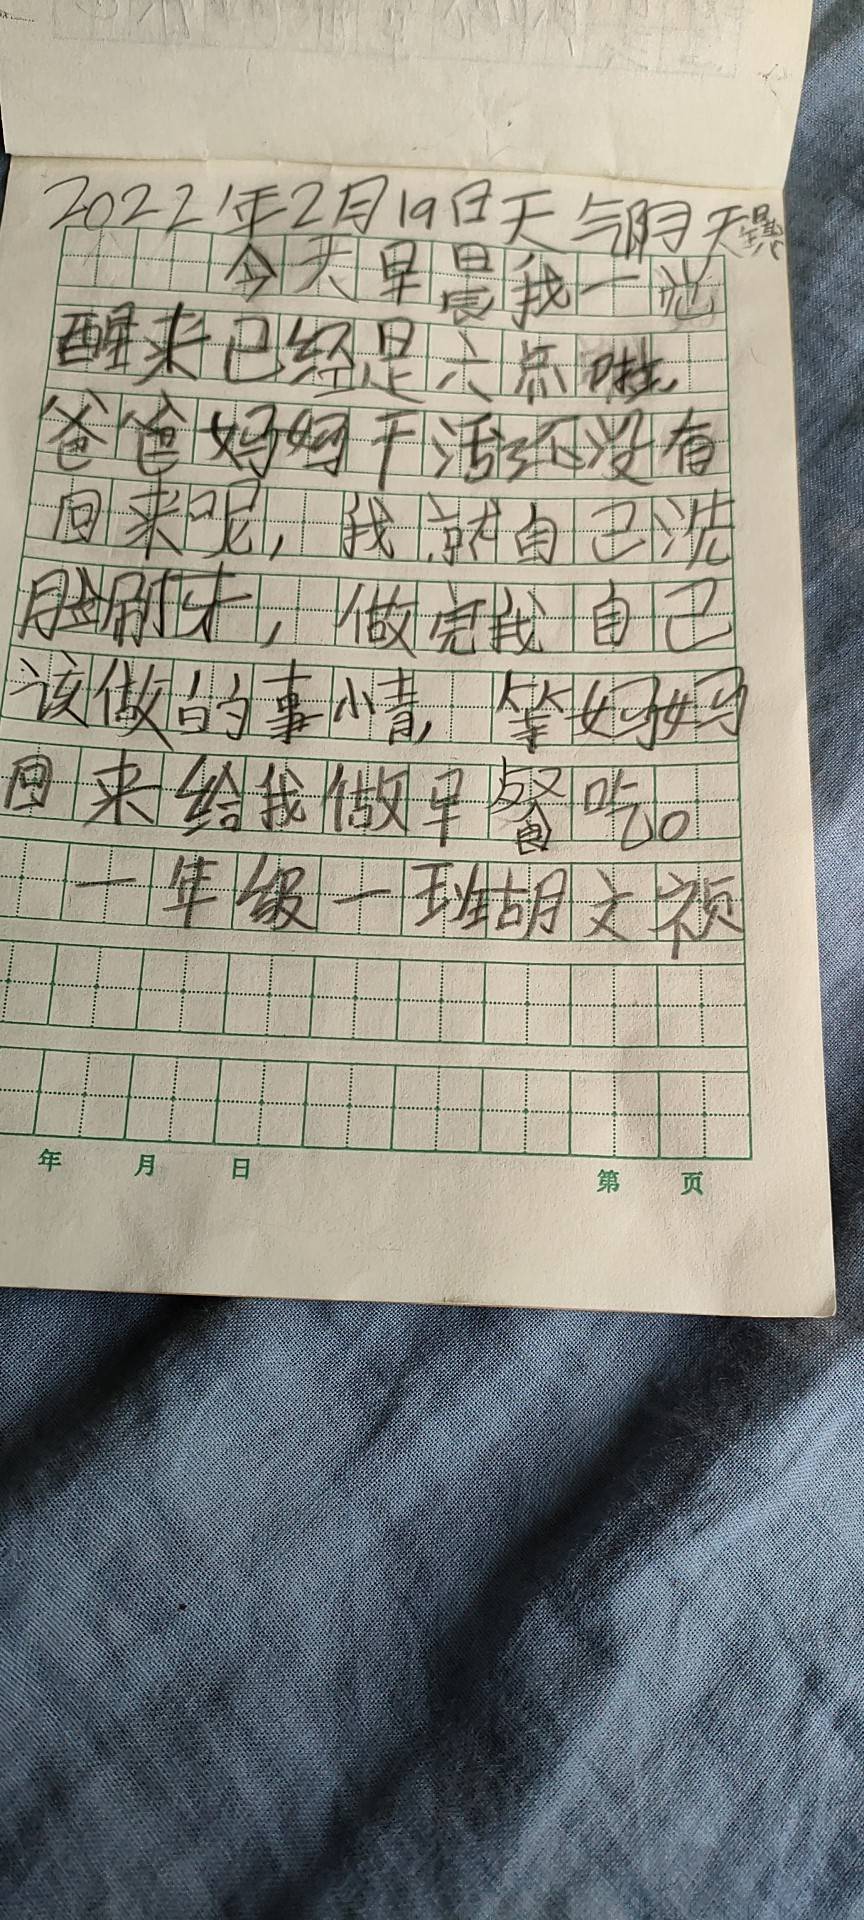 2022年2月19日天气阴天
今天早晨我一觉
醒来已经是六点啦,
爸爸妈妈干活还没有
回来呢,我就自己洗
脸刷牙,做完我自己
该做的事情,等妈妈
回来给我做早餐吃。
一年级一班胡文祯
年 月 日 第 页